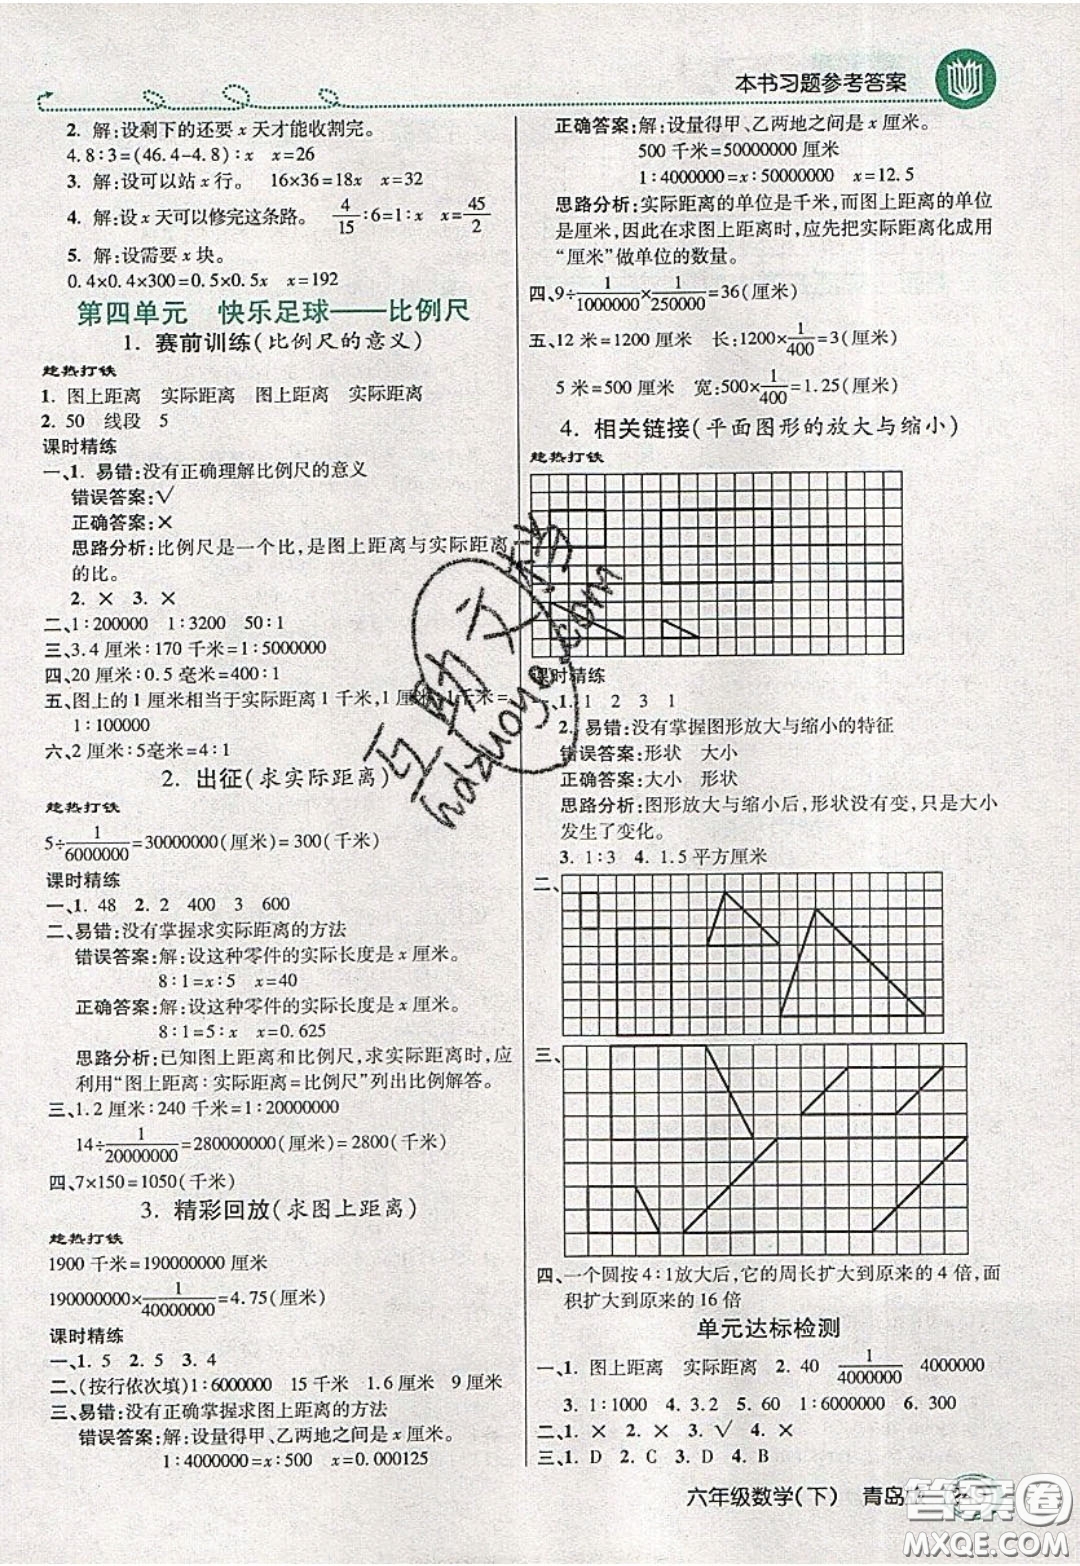 本书习题参考答案
2. 解:设剩下的还要 x 天才能收割完。
4.8∶3=(46.4-4.8)∶x　x=26
3. 解:设可以站 x 行。　16×36=18x　x=32
4. 解:设 x 天可以修完这条路。　4/15∶6=1∶x　x=45/2
5. 解:设需要 x 块。
0.4×0.4×300=0.5×0.5x　x=192
第四单元　快乐足球——比例尺
1. 赛前训练(比例尺的意义)
趁热打铁
1. 图上距离　实际距离　图上距离　实际距离
2. 50　线段　5
课时精练
一、1. 易错:没有正确理解比例尺的意义
错误答案:√
正确答案:×
思路分析:比例尺是一个比,是图上距离与实际距离
的比。
2. ×　3. ×
二、1∶200000　1∶3200　50∶1
三、3.4 厘米∶170 千米=1∶5000000
四、20 厘米∶0.5 毫米=400∶1
五、图上的 1 厘米相当于实际距离 1 千米,1 厘米∶1 千米=
1∶100000
六、2 厘米∶5毫米=4∶1
2. 出征(求实际距离)
趁热打铁
5÷1/6000000=30000000(厘米)=300(千米)
课时精练
一、1. 48　2. 2　400　3　600
二、易错:没有掌握求实际距离的方法
错误答案:解:设这种零件的实际长度是 x 厘米。
8∶1=x∶5　x=40
正确答案:解:设这种零件的实际长度是 x 厘米。
8∶1=5∶x　x=0.625
思路分析:已知图上距离和比例尺,求实际距离时,应
利用“图上距离∶实际距离=比例尺”列出比例解答。
三、1.2 厘米∶240 千米=1∶20000000
14÷1/20000000=280000000(厘米)=2800(千米)
四、7×150=1050(千米)
3. 精彩回放(求图上距离)
趁热打铁
1900 千米=190000000 厘米
190000000×1/40000000=4.75(厘米)
课时精练
一、1. 5　2. 5　3. 4
二、(按行依次填)1∶6000000　15 千米　1.6 厘米　9 厘米
三、易错:没有正确掌握求图上距离的方法
错误答案:解:设量得甲、乙两地之间是 x 厘米。
1∶4000000=x∶500　x=0.000125
正确答案:解:设量得甲、乙两地之间是 x 厘米。
500 千米=50000000 厘米
1∶4000000=x∶50000000　x=12.5
思路分析:实际距离的单位是千米,而图上距离的单位
是厘米,因此在求图上距离时,应先把实际距离化成用
“厘米”做单位的数量。
四、9÷1/1000000×1/250000=36(厘米)
五、12 米=1200 厘米　长:1200×1/400=3(厘米)
5 米=500 厘米　宽:500×1/400=1.25(厘米)
4. 相关链接(平面图形的放大与缩小)
趁热打铁
课时精练
一、1. 1　2　3　1
2. 易错:没有掌握图形放大与缩小的特征
错误答案:形状　大小
正确答案:大小　形状
思路分析:图形放大与缩小后,形状没有变,只是大小
发生了变化。
3. 1∶3　4. 1.5 平方厘米
二、
三、
四、一个圆按 4∶1放大后,它的周长扩大到原来的 4 倍,面
积扩大到原来的 16 倍
单元达标检测
一、1. 图上距离　实际距离　2. 40　1/4000000　4000000
3. 1∶1000　4. 3.2　5. 60　1∶6000000　6. 300
二、1. ×　2. ×　3. √　4. ×
三、1. D　2. C　3. D　4. B
六年级数学(下)　青岛
互助文档
hdzuoye.com
答案卷
MXQE.COM